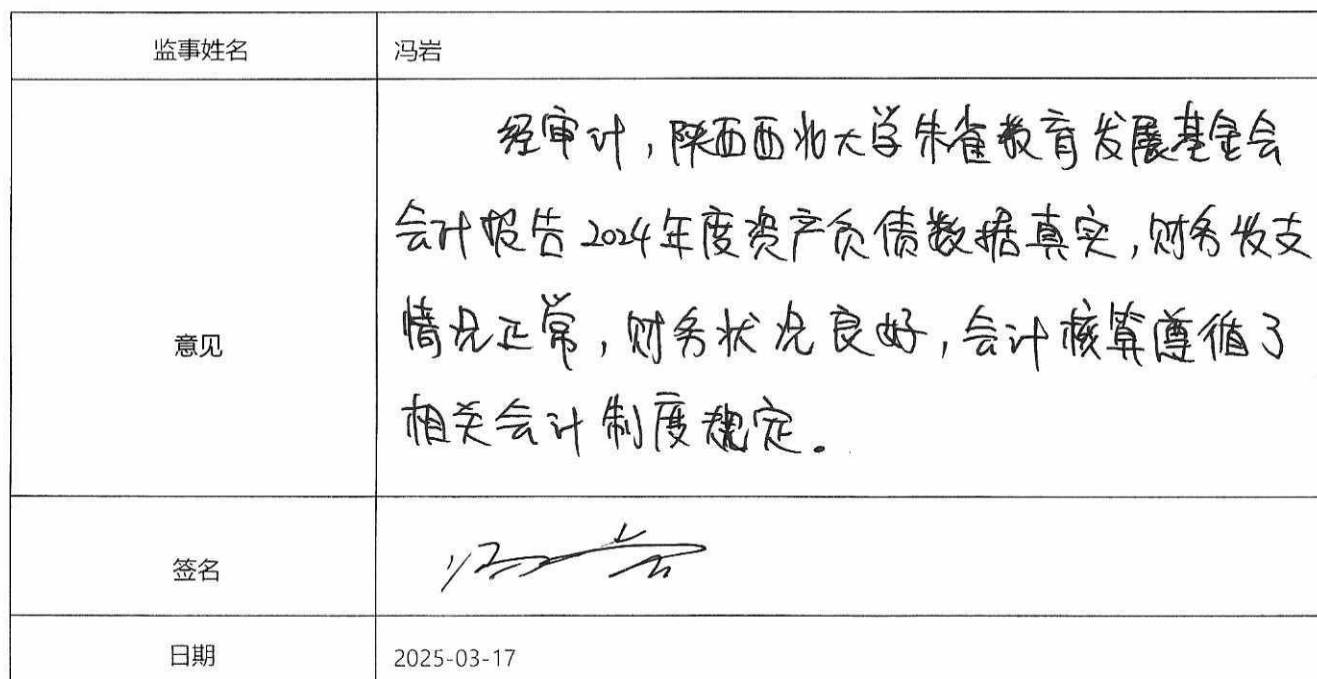 监事姓名 冯岩
经审计,陕西西北大学朱雀教育发展基金会
会计报告2024年度资产负债数据真实,财务收支
意见
情况正常,财务状况良好,会计核算遵循了
相关会计制度规定.
签名 冯岩
日期 2025-03-17